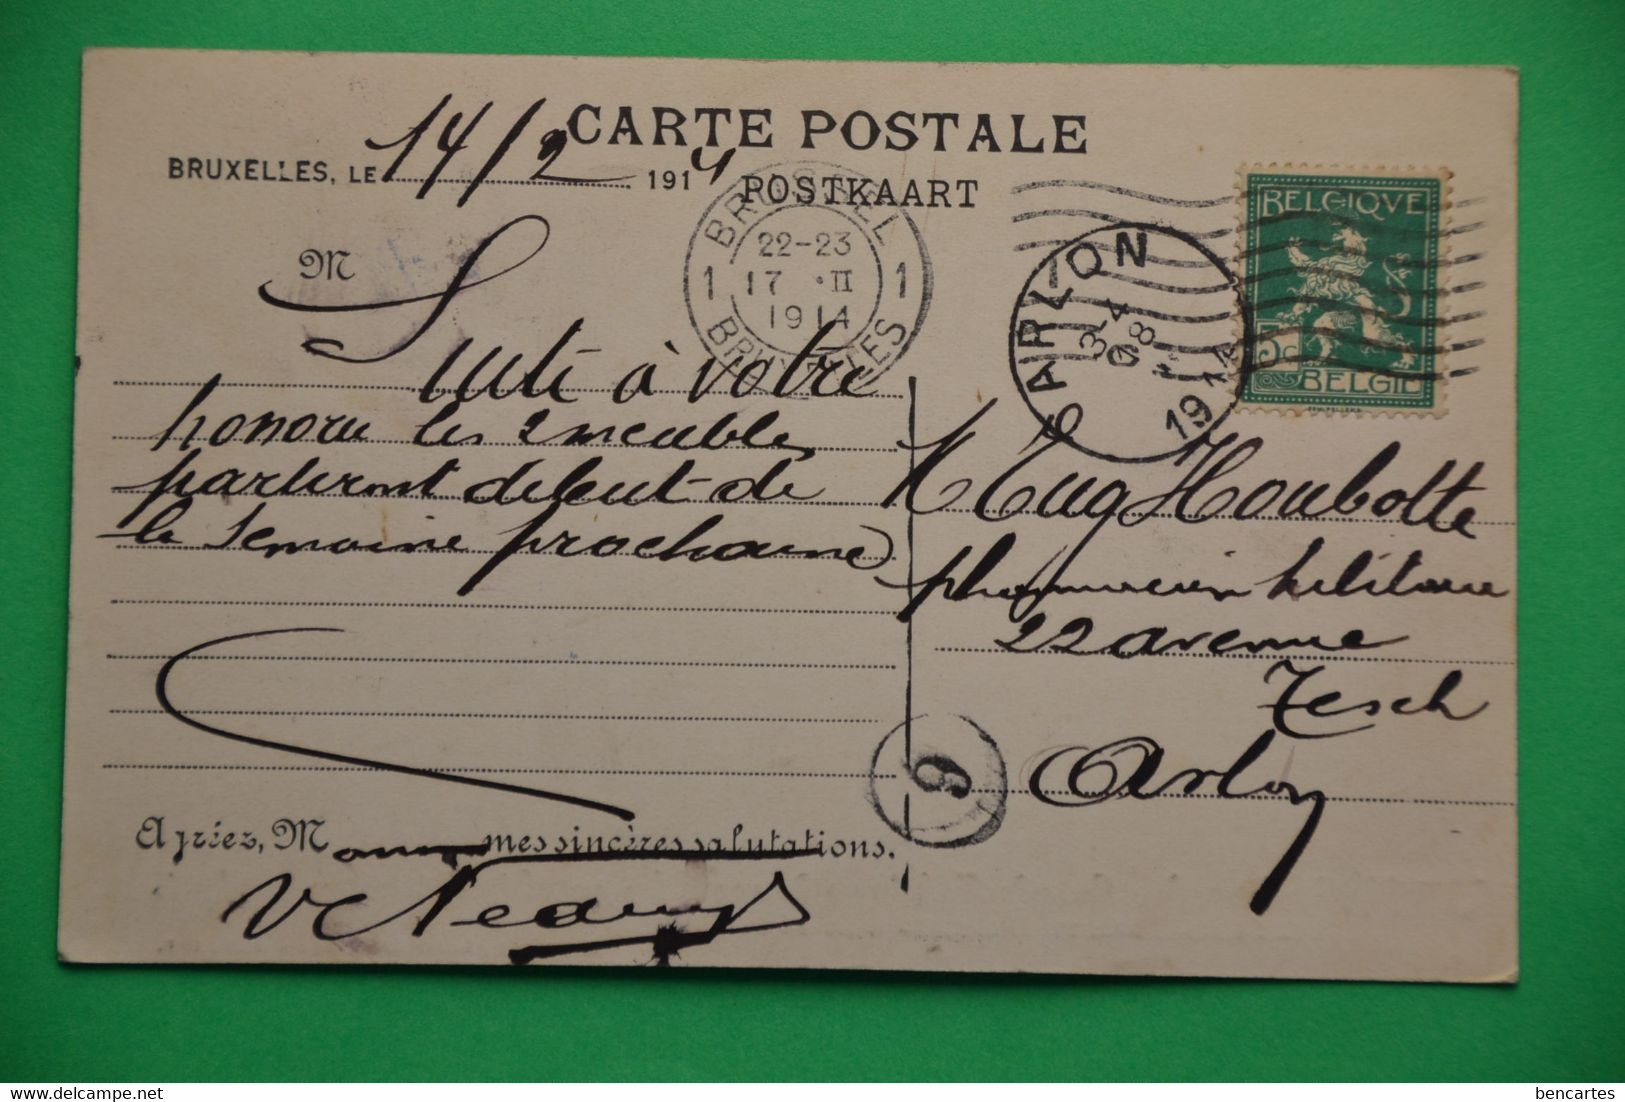 CARTE POSTALE
POSTKAART
BRUXELLES, LE 14/2 1914
M
Suite à votre
honorée les 2 meubles
partiront debut de
la semaine prochaine
Agréez, M mes sincères salutations.
BRUSSEL
1 22-23 1
17 · II
1914
BRUXELLES
ARLON
1914
BELGIQUE
5c
BELGIE
M Eug Houbotte
pharmacien Militaire
22 avenue
Tesch
Arlon
9
bencartes